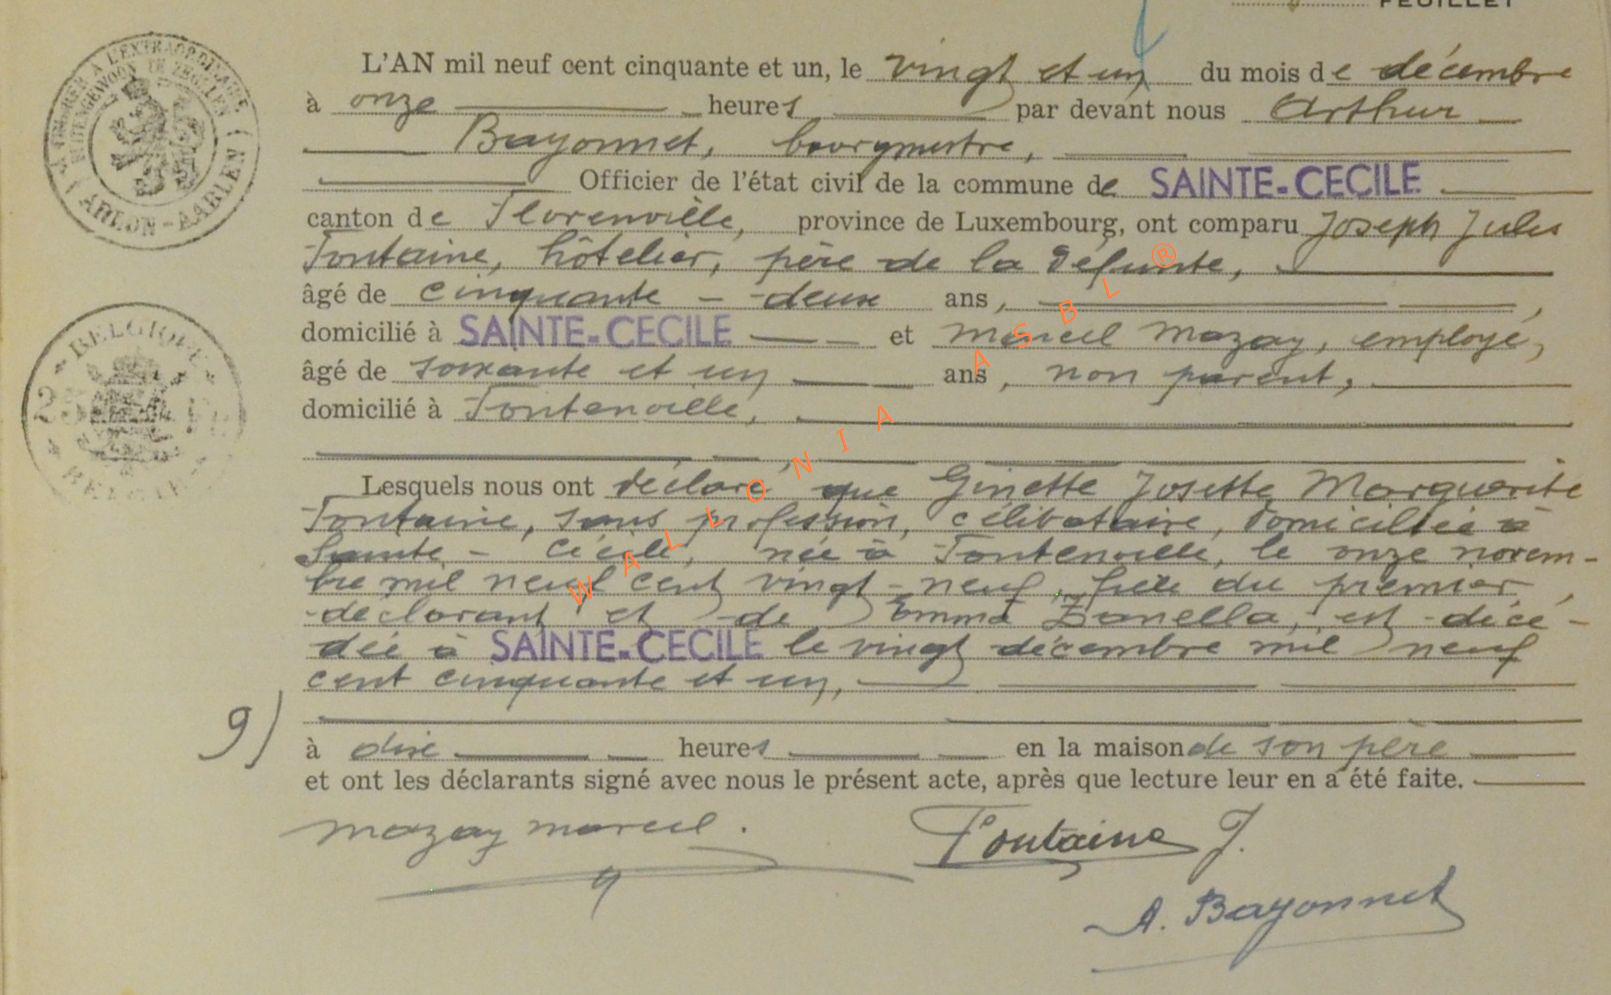 FEUILLET
L'AN mil neuf cent cinquante et un, le vingt et un du mois de décembre
à onze heures par devant nous Arthur
Bayonnet, bourgmestre,
Officier de l'état civil de la commune de SAINTE-CECILE
canton de Florenville, province de Luxembourg, ont comparu Joseph Jules
Fontaine, hôtelier, père de la défunte,
âgé de cinquante-deux ans,
domicilié à SAINTE-CECILE et Marcel Mazay, employé,
âgé de soixante et un ans, non parent,
domicilié à Fontenoille,
Lesquels nous ont déclaré que Ginette Josette Marguerite
Fontaine, sans profession, célibataire, domiciliée à
Sainte-Cécile, née à Fontenoille, le onze novem-
bre mil neuf cent vingt-neuf, fille du premier
déclarant et de Emma Zanella, est décé-
dée à SAINTE-CECILE le vingt décembre mil neuf
cent cinquante et un,
9)
à dix heures en la maison de son père
et ont les déclarants signé avec nous le présent acte, après que lecture leur en a été faite.
Mazay Marcel.
Fontaine J.
A. Bayonnet
BELGIQUE
ARLON-AARLEN
WALLONIA ASBL ®